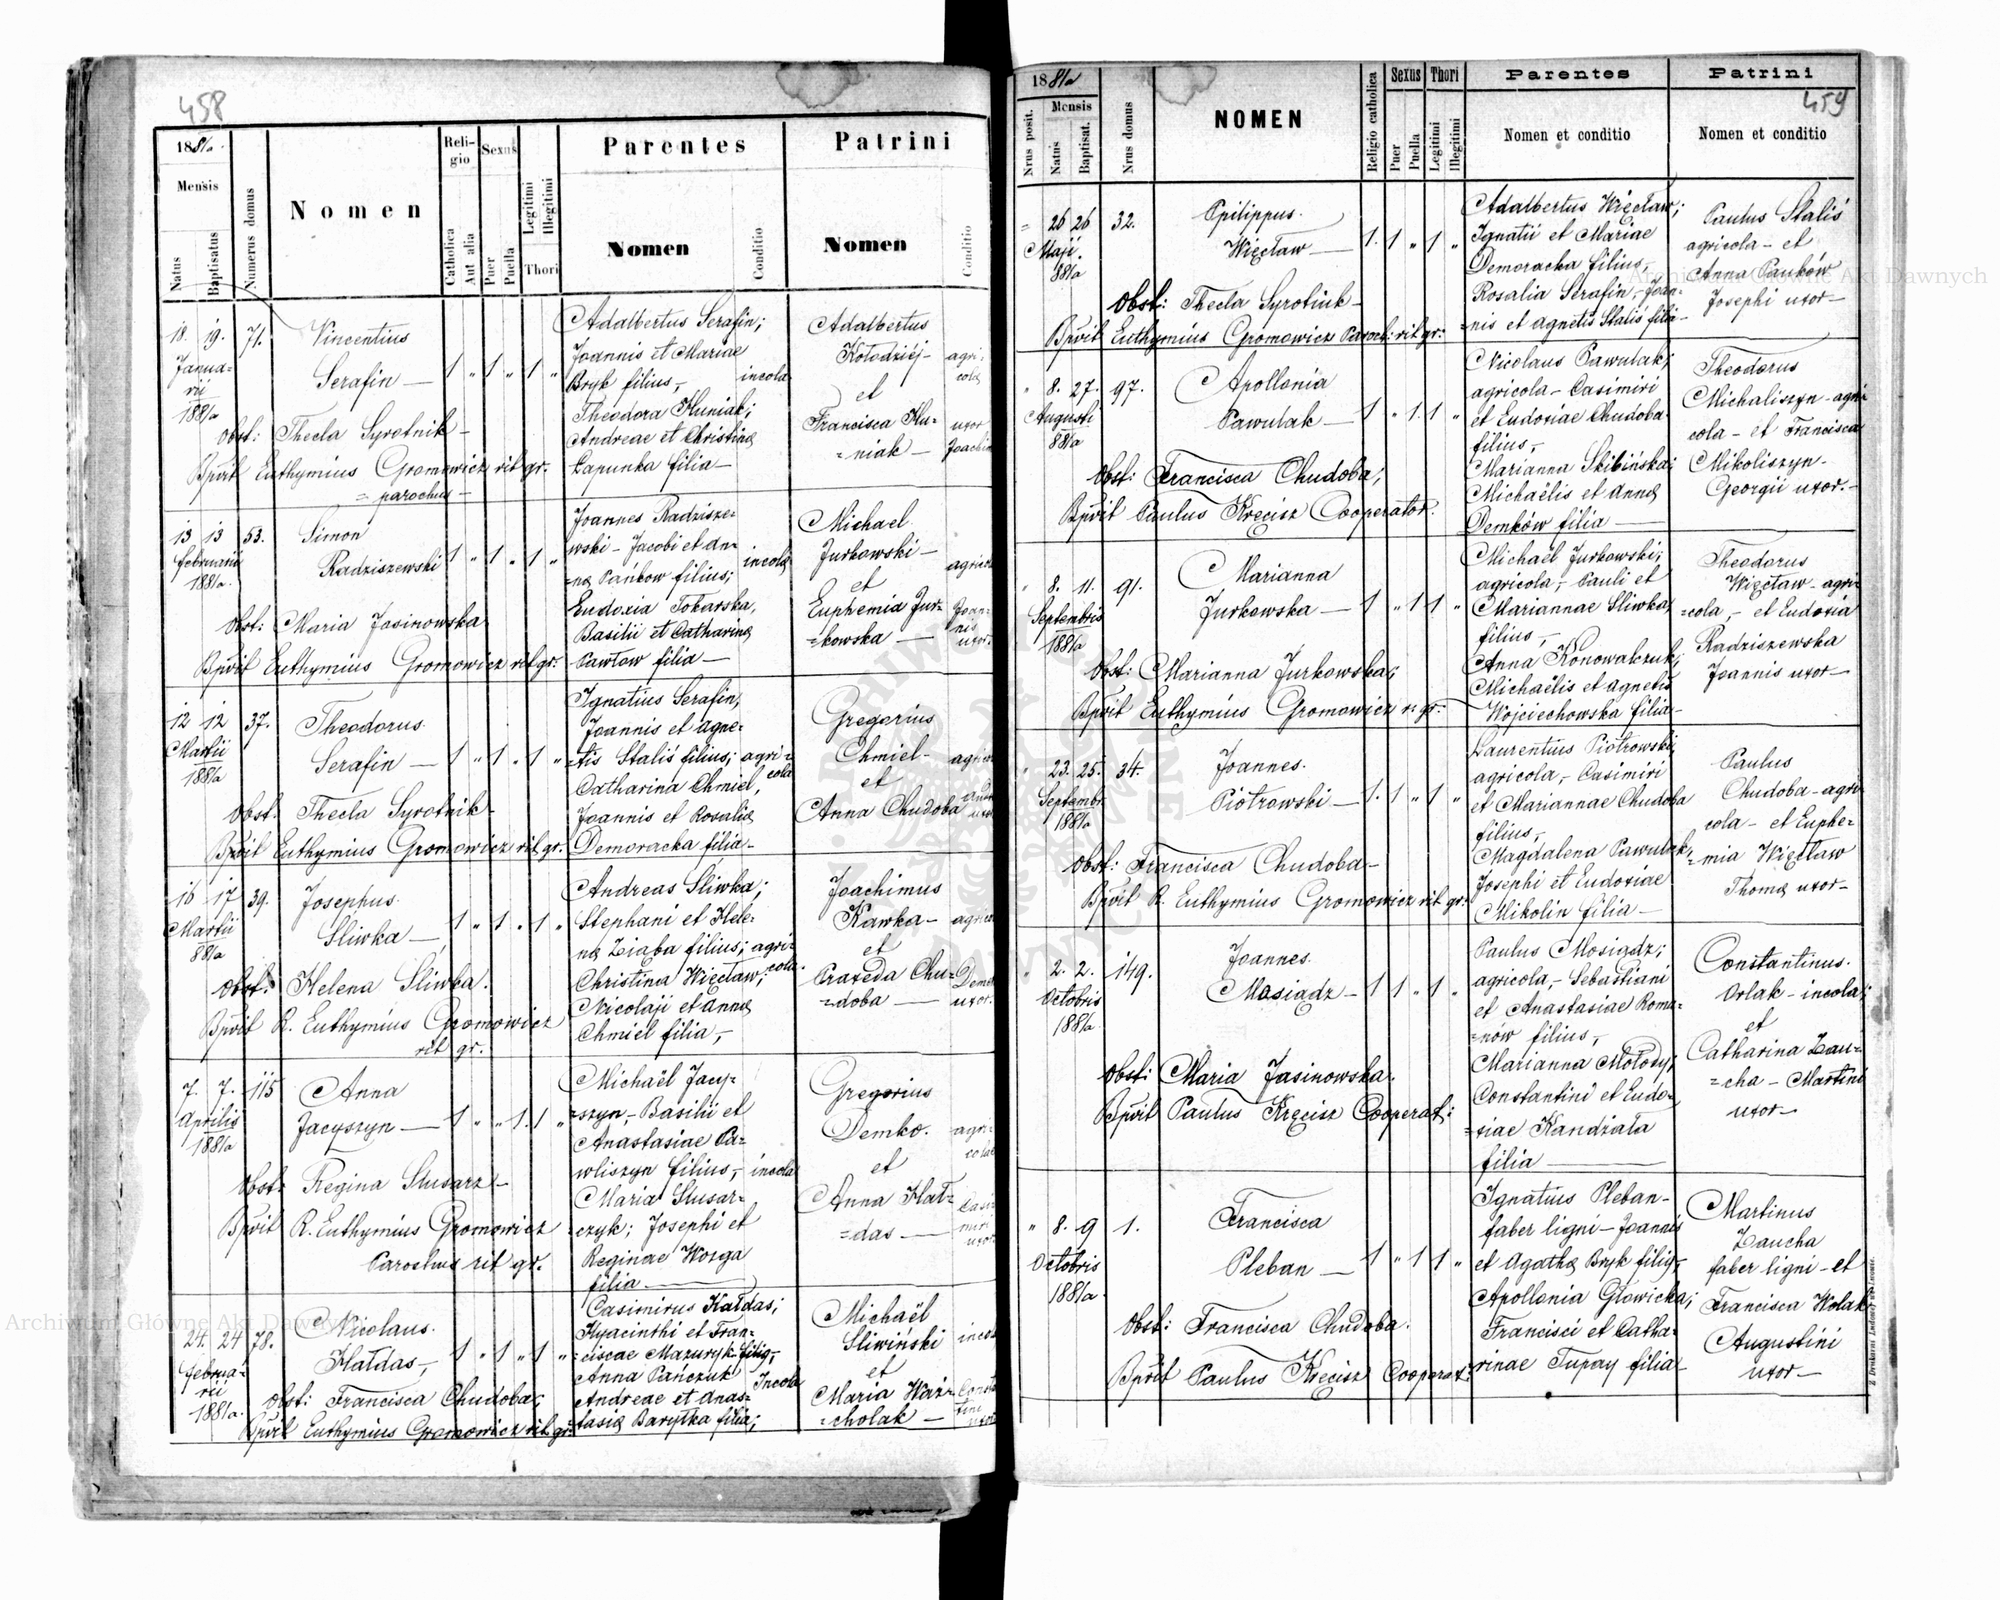 458
1881/a.
Mensis
Natus
Baptisatus
Numerus domus
Nomen
Religio
Catholica
Aut alia
Sexus
Puer
Puella
Legitimi
Illegitimi
Thori
Parentes
Nomen
Conditio
Patrini
Nomen
Conditio
18. 19. 71.
Januarii
1881/a
Vincentius
Serafin —
1 " 1 " 1 "
Adalbertus Serafin;
Joannis et Mariae
Bryk filius,-
incola
Theodora Huniak;
Andreae et Christinae
Łapunka filia —
Adalbertus
Kołodziéj-
agri-
cola
et
Francisca Hu-
=niak —
uxor
Joachim
Obst: Thecla Syrotnik -
Bpvit Euthymius Gromowicz rit gr.
= parochus -
13 13 53.
Februarii
1881/a.
Simon
Radziszewski
1 " 1 " 1 "
Joannes Radzisze-
wski - Jacobi et An-
=nae Pańkow filius;
incola
Eudoxia Tobarska,
Basilii et Catharinae
Pawłow filia —
Michael
Jurkowski —
agricol
et
Euphemia Jur-
=kowska —
Joan-
nis
uxor.
Obst: Maria Jasinowska
Bpvit Euthymius Gromowicz rit gr.
12 12 37.
Martii
1881/a
Theodorus
Serafin —
1 " 1 " 1 "
Ignatius Serafin,
Joannis et Agne-
tis Staliś filius; agri-
cola
Catharina Chmiel,
Joannis et Rosaliae
Demoracka filia -
Gregorius
Chmiel-
et
Anna Chudoba
Obst. Thecla Syrotnik-
Bpvit Euthymius Gromowicz rit gr.
16 17 39.
Martii
881/a
Josephus
Śliwka —
1 " 1 " 1 "
Andreas Śliwka;
Stephani et Hele-
nae Ziąba filius; agri-
cola.
Christina Więcław;
Nicolaji et Annae
Chmiel filia,-
Joachimus
Kawka -
et
Praxeda Chu-
=doba —
uxor.
Obst: Helena Śliwka.
Bpvit R. Euthymius Gromowicz
rit gr.
7. 7. 115
Aprilis
1881/a
Anna
Jacyszyn —
1 " " 1. 1 "
Michaël Jacy-
=szyn,- Basilii et
Anastasiae Pa-
wliszyn filius,- incola
Maria Slusar-
=czyk; Josephi et
Reginae Wozga
filia —
Gregorius
Demko.
agri-
cola
et
Anna Hał-
=das —
Casi-
miri
uxor
Obst: Regina Slusarz -
Bpvit R. Euthymius Gromowicz
Parochus rit gr.
24. 24 78.
Februa-
rii
1881/a.
Nicolaus
Hałdas,-
1 " 1 " 1 "
Casimirus Hałdas;
Hyacinthi et Fran-
=ciscae Mazuryk filius,-
Anna Pańczuk
Incola
Andreae et Anas-
tasiae Baryłka filia;
Michaël
Śliwiński
et
Maria Waź-
=cholak —
Obst: Francisca Chudoba;
Bpvit Euthymius Gromowicz rit gr.
459
1881/a
Nrus posit.
Mensis
Natus
Baptisat.
Nrus domus
NOMEN
Religio catholica
Sexus
Puer
Puella
Thori
Legitimi
Illegitimi
Parentes
Nomen et conditio
Patrini
Nomen et conditio
" 26 26 32.
Maji.
881/a
Philippus.
Więcław —
1. 1 " 1 "
Adalbertus Więcław;
Ignatii et Mariae
Demoracka filius,-
Rosalia Serafin,- Joan-
=nis et Agnetis Staliś filia-
Paulus Staliś
agricola — et
Anna Pańków
Josephi uxor —
Obst: Thecla Syrotiuk -
Bpvit Euthymius Gromowicz Paroch: rit gr:
" 8. 27. 97.
Augusti
881/a
Apollonia
Pawulak —
1 " 1. 1 "
Nicolaus Pawulak;
agricola - Casimiri
et Eudoxiae Chudoba
filius,-
Marianna Skibińska;
Michaëlis et Annae
Demków filia —
Theodorus
Michaliszyn - agri-
cola - et Francisca
Mikoliszyn-
Georgii uxor.-
Obst: Francisca Chudoba;
Bpvit Paulus Kręcisz Cooperator.
" 8. 11. 91.
Septembris
1881/a
Marianna
Jurkowska —
1 " 1 1 "
Michaël Jurkowski;
agricola,- Pauli et
Mariannae Śliwka,
filius,-
Anna Konowalczuk;
Michaëlis et Agnetis
Wojciechowska filia-
Theodorus
Więcław - agri-
=cola,- et Eudoxia
Radziszewska
Joannis uxor —
Obst: Marianna Jurkowska;
Bpvit Euthymius Gromowicz r. gr.
" 23. 25. 34.
Septembr.
1881/a
Joannes.
Piotrowski —
1. 1 " 1 "
Laurentius Piotrowski;
agricola,- Casimiri
et Mariannae Chudoba
filius,-
Magdalena Pawulak,-
Josephi et Eudoxiae
Mikolin filia —
Paulus
Chudoba - agri
cola — et Euphe-
=mia Więcław
Thomae uxor —
Obst: Francisca Chudoba -
Bpvit R. Euthymius Gromowicz rit gr.
" 2. 2. 149.
Octobris
1881/a.
Joannes.
Mosiądz —
1 1 " 1 "
Paulus Mosiądz;
agricola,- Sebastiani
et Anastasiae Roma-
=nów filius,-
Marianna Mołody;
Constantini et Eudo-
=xiae Kandziała
filia —
Constantinus.
Orlak - incola;
et
Catharina Zau-
=cha - Martini
uxor —
Obst: Maria Jasinowska.
Bpvit Paulus Kręcisz Cooperat:
" 8. 9 1.
Octobris
1881/a.
Francisca
Pleban —
1 " 1 1 "
Ignatius Pleban-
faber ligni - Joannis
et Agathae Bryk filius,-
Apollonia Głowicka;
Francisci et Catha-
rinae Tupay filia —
Martinus
Zaucha
faber ligni - et
Francisca Wolak
Augustini
uxor —
Obst: Francisca Chudoba.
Bpvit Paulus Kręcisz Cooperat:
Archiwum Główne Akt Dawnych
Archiwum Główne Akt Dawnych